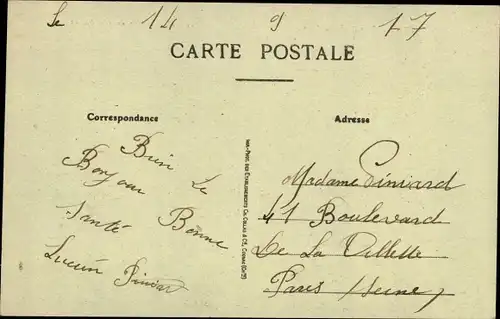 Le 14 9 17
CARTE POSTALE
Correspondance
Adresse
Bien Le
Bonjour
Bonne
Santé
Lucien Siniard
IMP.-PHOT. DES ETABLISSEMENTS CH. COLLAS & CIE, COGNAC (CH.TE)
Madame Siniard
41 Boulevard
De La Villette
Paris (Seine)